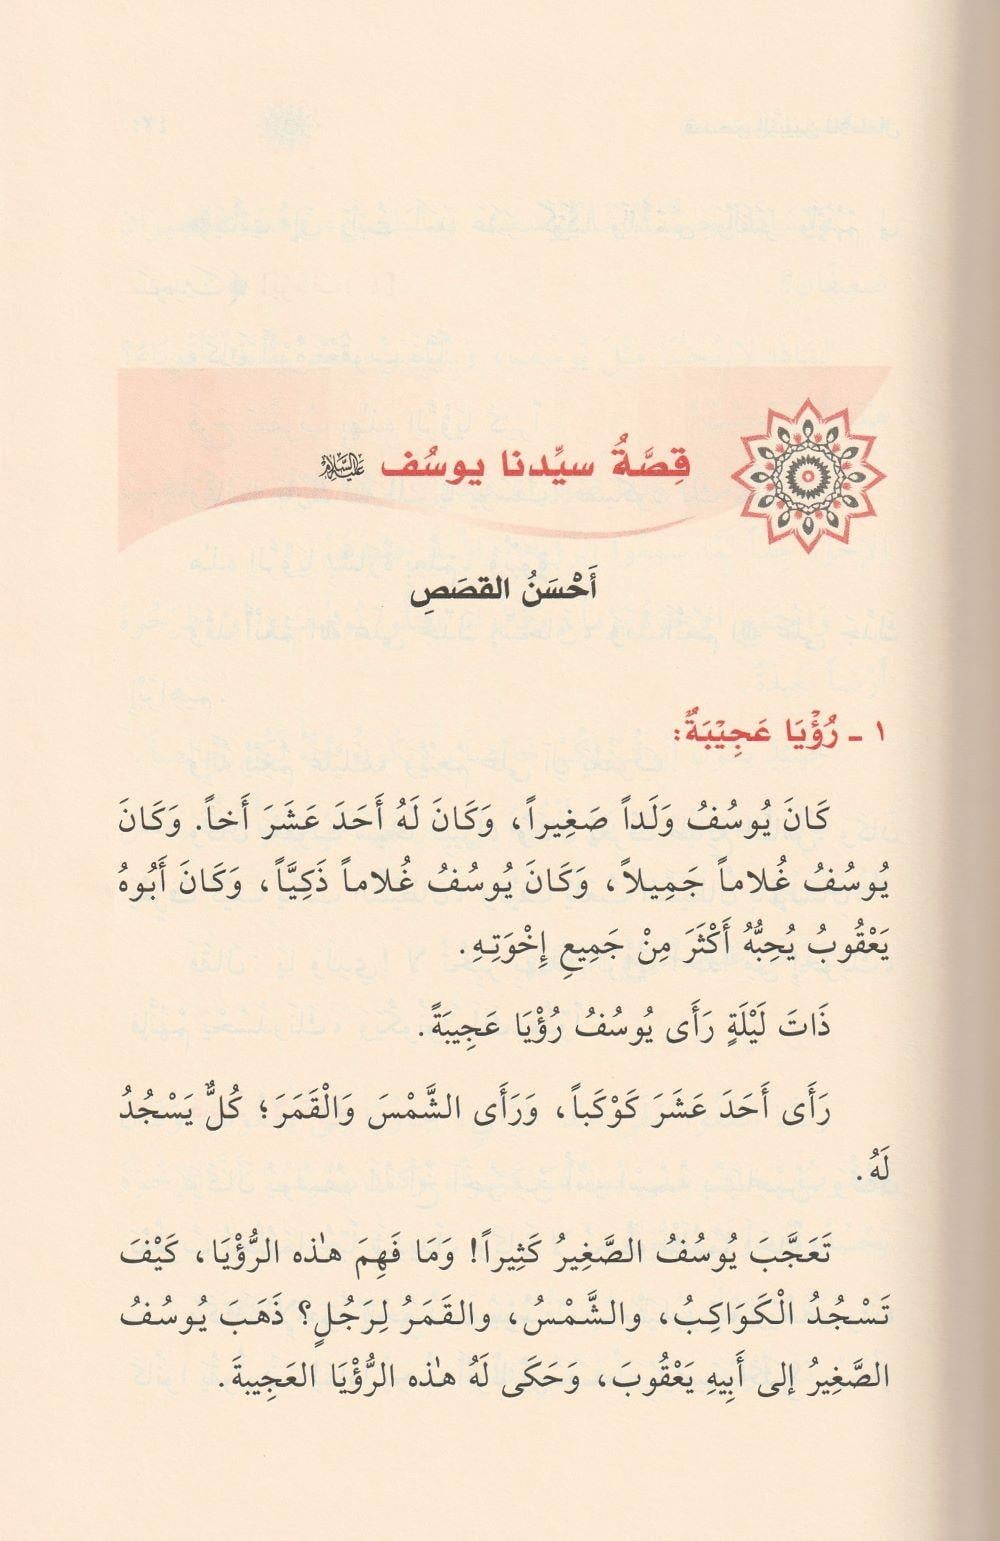 قِصَّةُ سيِّدنا يوسُف عَلَيْهِ السَّلَام
أَحْسَنُ القصَصِ
١ ـ رُؤْيَا عَجِيْبَةٌ:
كَانَ يُوسُفُ وَلَداً صَغِيراً، وَكَانَ لَهُ أَحَدَ عَشَرَ أَخاً. وَكَانَ
يُوسُفُ غُلاماً جَمِيلاً، وَكَانَ يُوسُفُ غُلاماً ذَكِيَّاً، وَكَانَ أَبُوهُ
يَعْقُوبُ يُحِبُّهُ أَكْثَرَ مِنْ جَمِيعِ إِخْوَتِهِ.
ذَاتَ لَيْلَةٍ رَأَى يُوسُفُ رُؤْيَا عَجِيبَةً.
رَأَى أَحَدَ عَشَرَ كَوْكَباً، وَرَأَى الشَّمْسَ وَالْقَمَرَ؛ كُلٌّ يَسْجُدُ
لَهُ.
تَعَجَّبَ يُوسُفُ الصَّغِيرُ كَثِيراً! وَمَا فَهِمَ هٰذه الرُّؤْيَا، كَيْفَ
تَسْجُدُ الْكَوَاكِبُ، والشَّمْسُ، والقَمَرُ لِرَجُلٍ؟ ذَهَبَ يُوسُفُ
الصَّغِيرُ إلى أَبِيهِ يَعْقُوبَ، وَحَكَى لَهُ هٰذه الرُّؤْيَا العَجِيبةَ.